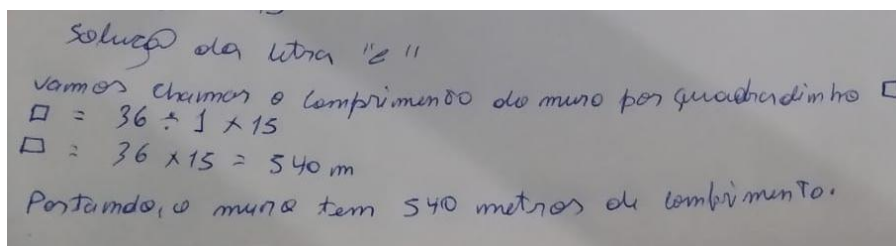 Solução da letra "c"
vamos chamar o comprimento do muro por quadradinho □
□ = 36 ÷ 1 × 15
□ = 36 × 15 = 540 m
Portando, o muro tem 540 metros de comprimento.